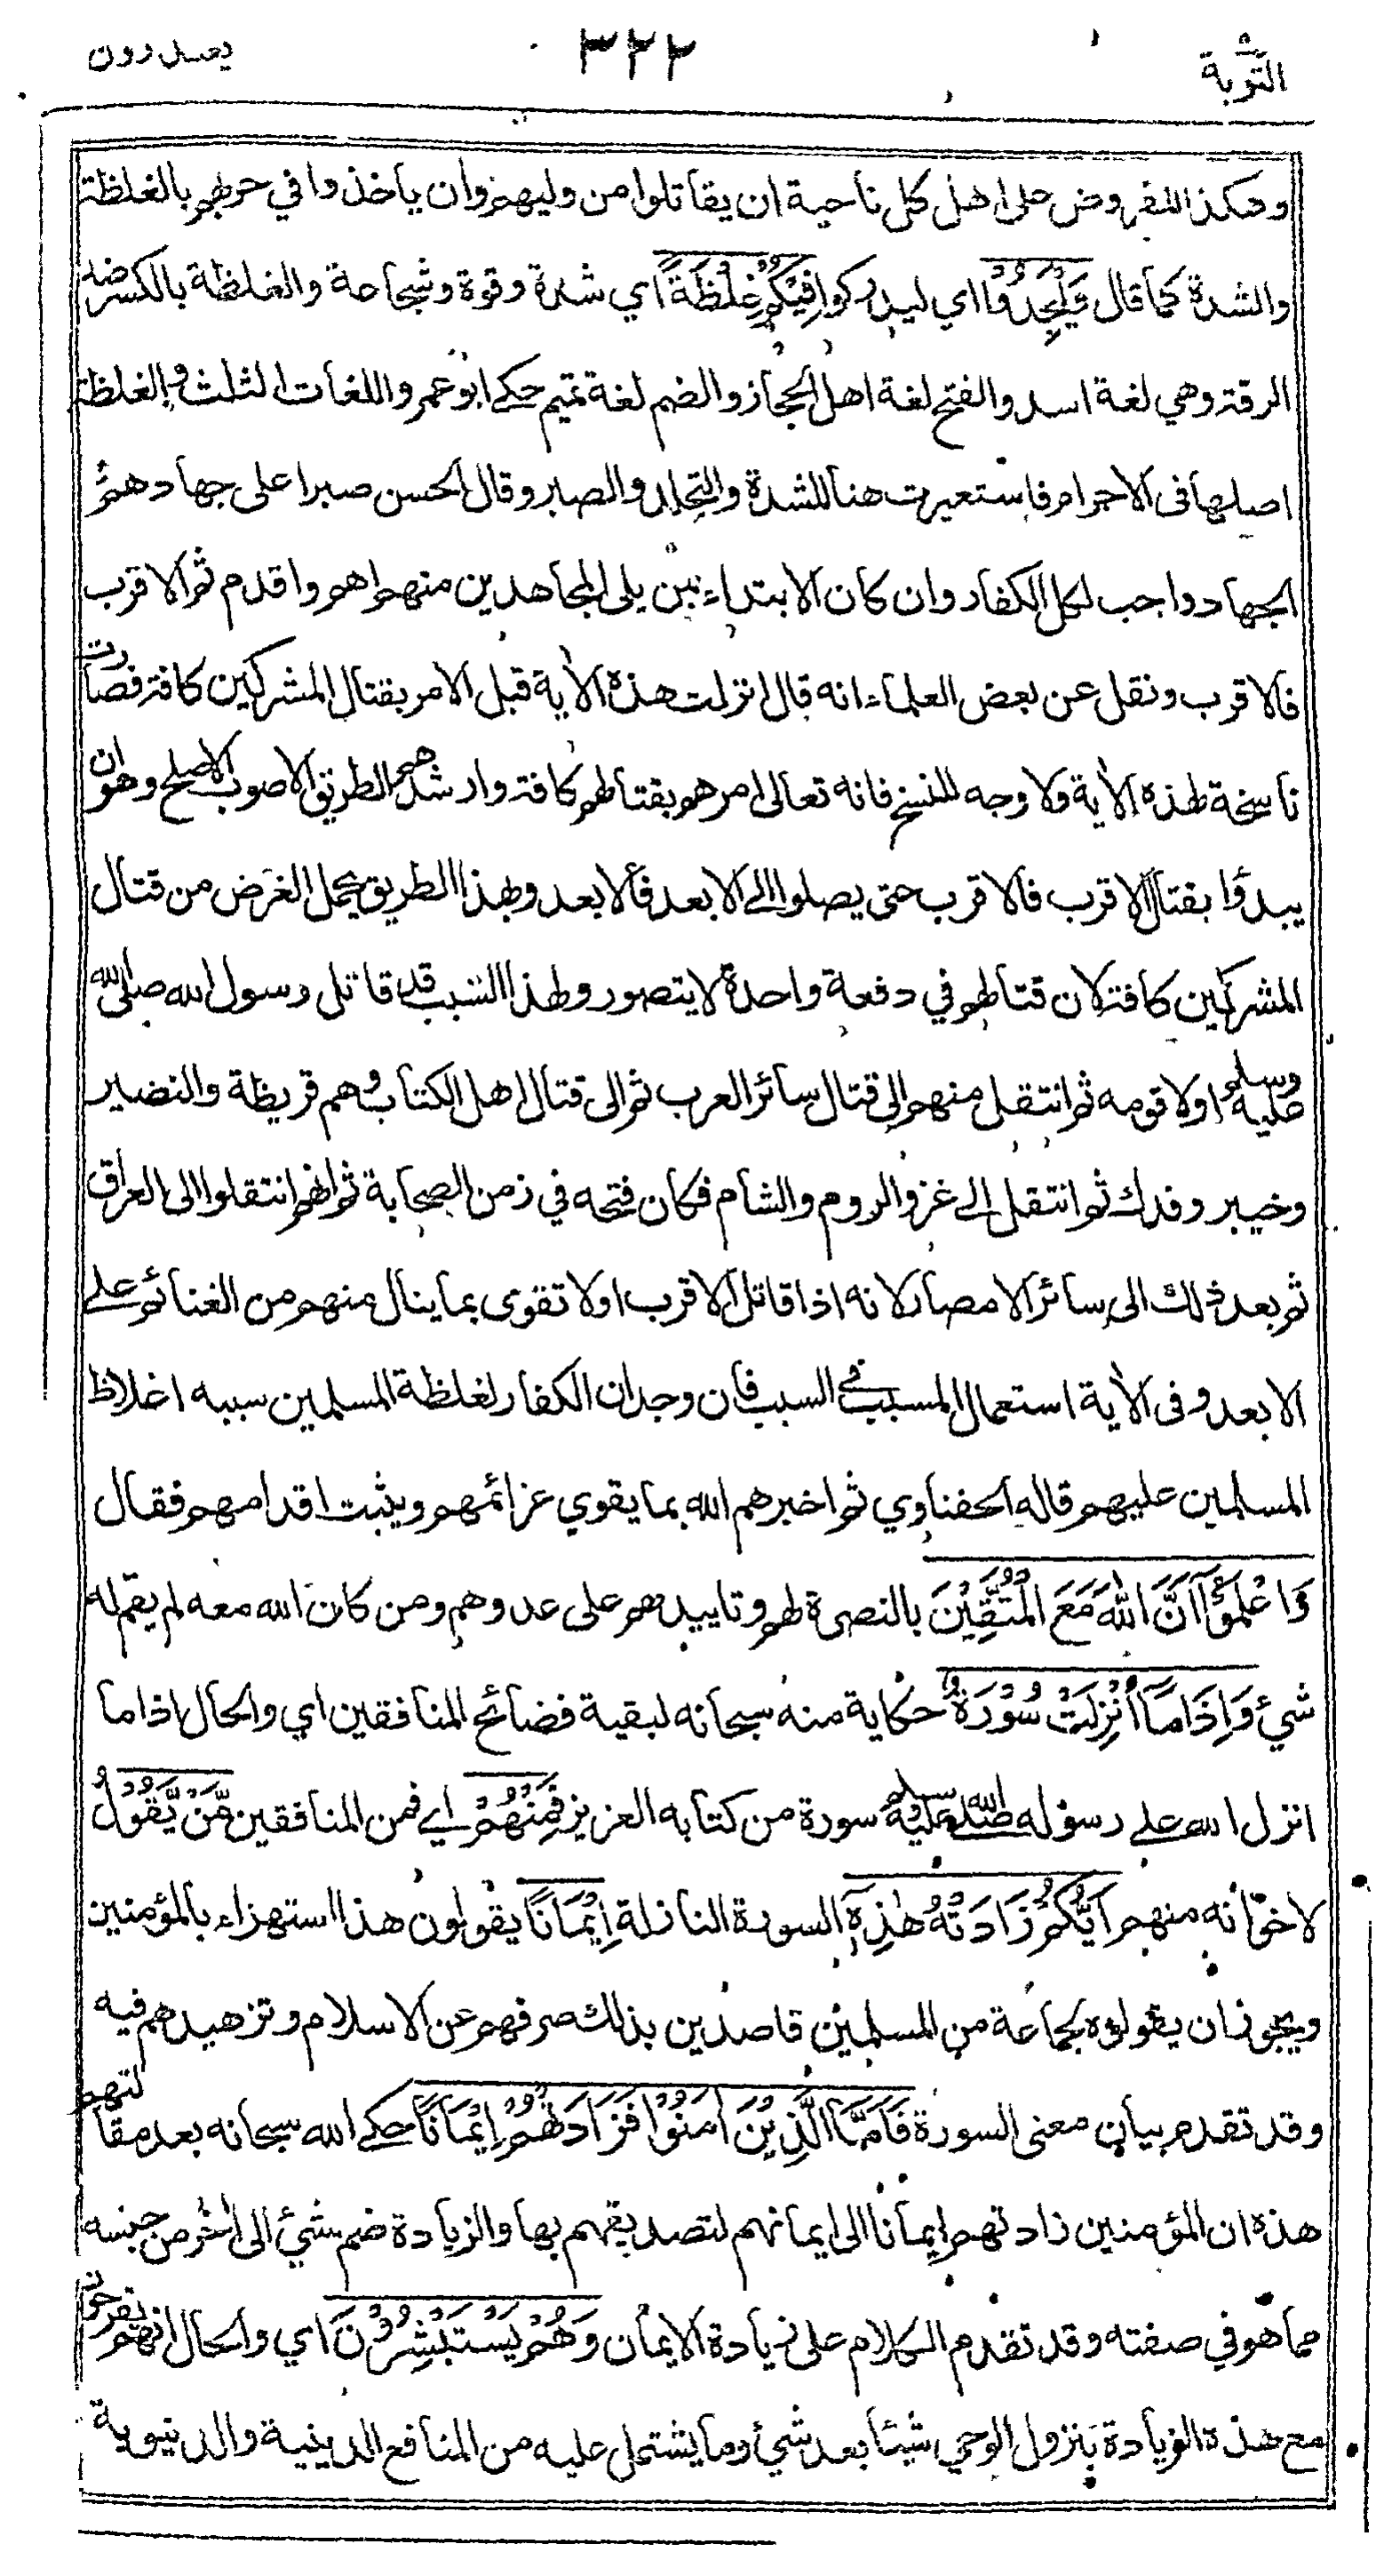 التوبة ٣٢٢ يعتذرون
وهكذا المفروض على اهل كل ناحية ان يقاتلوا من وليهم وان ياخذوا في حربهم بالغلظة
والشدة كما قال وَلْيَجِدُوْا اي ليدركوا فِيْكُمْ غِلْظَةً اي شدة وقوة وشجاعة والغلظة بالكسر ضد
الرقة وهي لغة اسد والفتح لغة اهل الحجاز والضم لغة تميم حكى ابو عمرو اللغات الثلث والغلظة
اصلها في الاجرام فاستعيرت هنا للشدة والتجلد والصبر وقال الحسن صبرا على جهادهم
الجهاد واجب لكل الكفار وان كان الابتداء بمن يلي المجاهدين منهم اهم واقدم ثم الاقرب
فالاقرب ونقل عن بعض العلماء انه قال انزلت هذه الأية قبل الامر بقتال المشركين كافة فصارت
ناسخة لهذه الأية ولا وجه للنسخ فانه تعالى امرهم بقتالهم كافة وارشدهم الطريق الاصوب الاصلح وهو ان
يبدؤا بقتال الاقرب فالاقرب حتى يصلوا الى الابعد فالابعد وبهذا الطريق يحمل الغرض من قتال
المشركين كافة لان قتالهم في دفعة واحدة لا يتصور ولهذا السبب قد قاتل رسول الله صلى الله
عليه وسلم اولا قومه ثم انتقل منهم الى قتال سائر العرب ثم الى قتال اهل الكتاب وهم قريظة والنضير
وخيبر وفدك ثم انتقل الى غزو الروم والشام فكان فتحه في زمن الصحابة ثم انهم انتقلوا الى العراق
ثم بعد ذلك الى سائر الامصار لانه اذا قاتل الاقرب اولا تقوى بما ينال منهم من الغنائم على
الابعد وفى الأية استعمال المسبب في السبب فان وجدان الكفار لغلظة المسلمين سببه اغلاظ
المسلمين عليهم قاله الحفناوي ثم اخبرهم الله بما يقوي عزائمهم ويثبت اقدامهم فقال
وَاعْلَمُوْآ اَنَّ اللهَ مَعَ الْمُتَّقِيْنَ بالنصرة لهم وتاييدهم على عدوهم ومن كان الله معه لم يقم له
شيئ وَاِذَا مَآ اُنْزِلَتْ سُوْرَةٌ حكاية منه سبحانه لبقية فضائح المنافقين اي والحال اذا ما
انزل الله على رسوله صلى الله عليه وسلم سورة من كتابه العزيز فَمِنْهُمْ اي فمن المنافقين مَّنْ يَّقُوْلُ
لاخوانه منهم اَيُّكُمْ زَادَتْهُ هٰذِهٖ السورة النازلة اِيْمَانًا يقولون هذا استهزاء بالمؤمنين
ويجوز ان يقولوه لجماعة من المسلمين قاصدين بذلك صرفهم عن الاسلام وتزهيدهم فيه
وقد تقدم بيان معنى السورة فَاَمَّا الَّذِيْنَ اٰمَنُوْا فَزَادَتْهُمْ اِيْمَانًا حكى الله سبحانه بعد مقالتهم
هذه ان المؤمنين زادتهم ايمانا الى ايمانهم لتصديقهم بها والزيادة ضم شيئ الى اٰخر من جنسه
مما هو في صفته وقد تقدم الكلام على زيادة الايمان وَهُمْ يَسْتَبْشِرُوْنَ اي والحال انهم يفرحون
مع هذه الزيادة بنزول الوحي شيئا بعد شيئ وما يشتمل عليه من المنافع الدينية والدنيوية